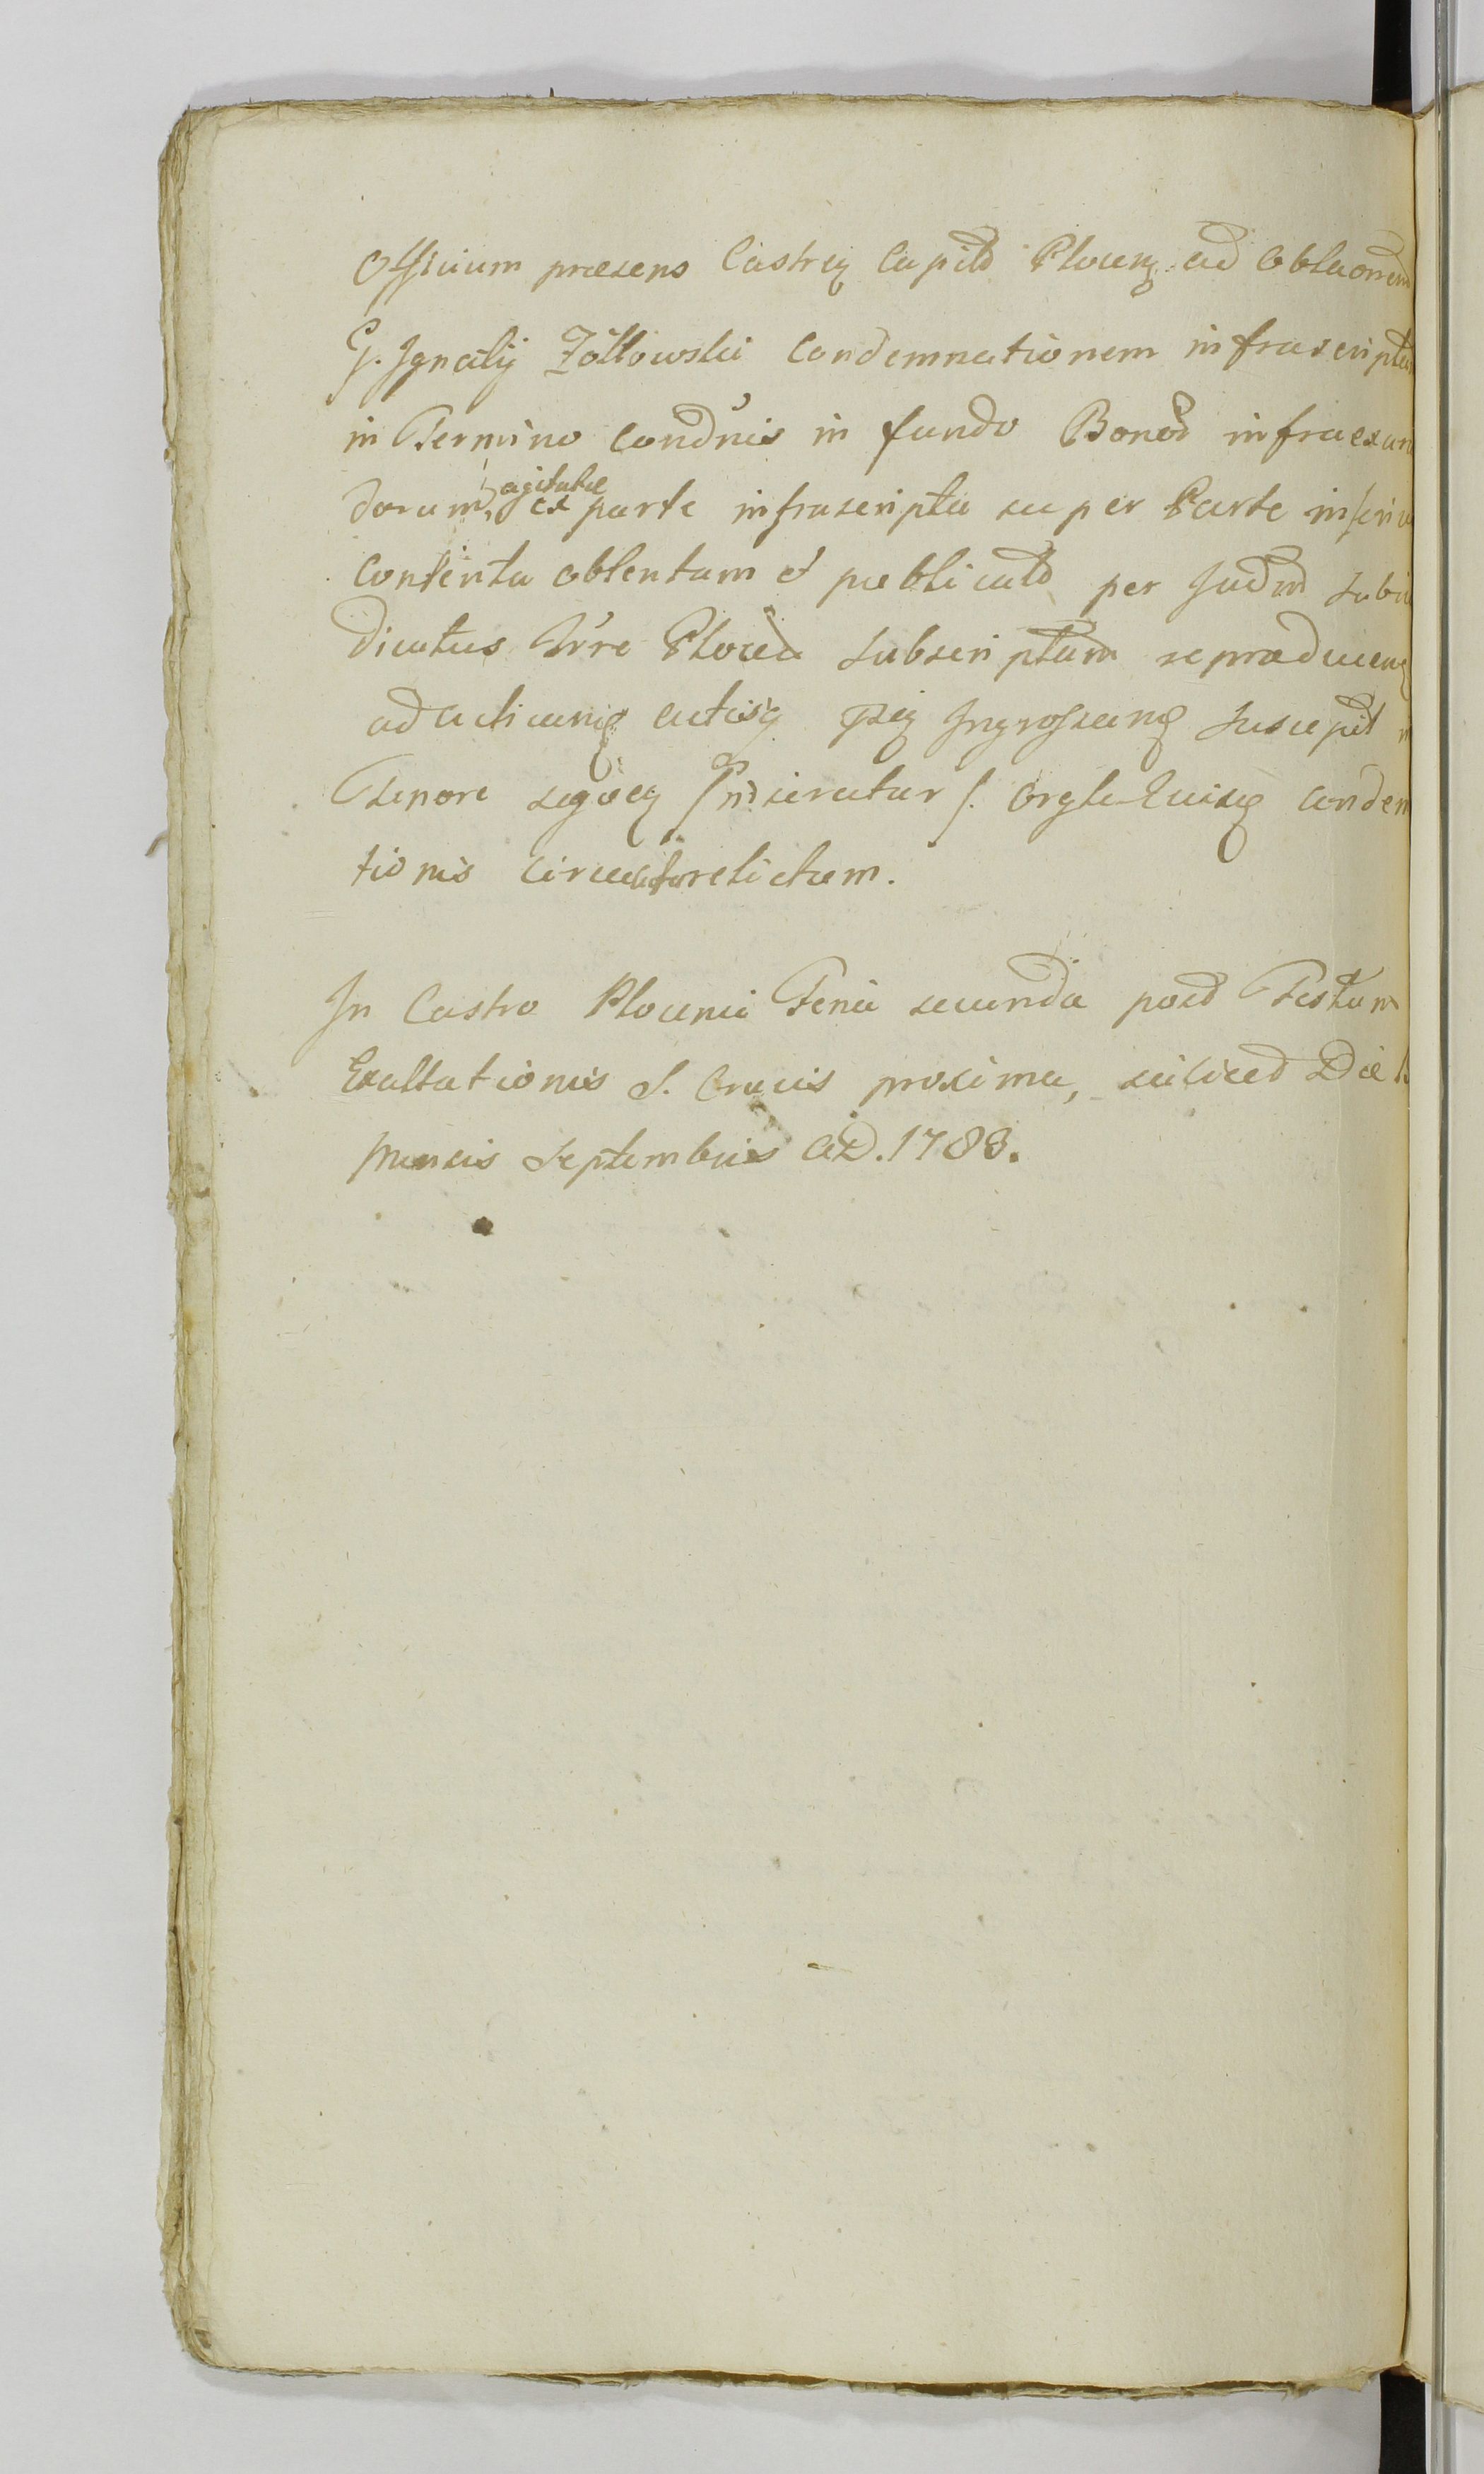 Officium praesens Castren Capitl Plocen ad Oblaonem
G. Ignatij Zółtowski Condemnationem infrascriptam
in Termino Condnis in fundo Bonor infraexaran
dorum, agitatae ex parte infrascripta super Parte inferius
contenta obtentam et publicatam per Judm Subiu
dicatus Trre Plocen Subscriptam reproducens
ad acticans actisq psn Ingrossans Suscepit
Tenore seqven inseratur Orgle Euisq condemna
tionis circa relictum.
In Castro Plocensi Feria secunda post Festum
Exaltationis S. Crucis proxima, scilicet Die
Mensis Septembris AD. 1788.